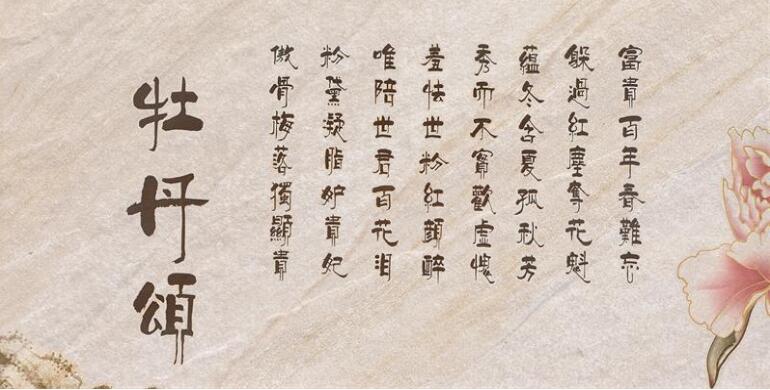 富貴百年香難忘
躲過紅塵奪花魁
蘊冬含夏孤秋芳
秀而不實歡虛愧
羞怯世粉紅顏醉
唯陪世君百花泪
粉黛凝脂妒貴妃
傲骨梅落獨顯貴
牡丹頌